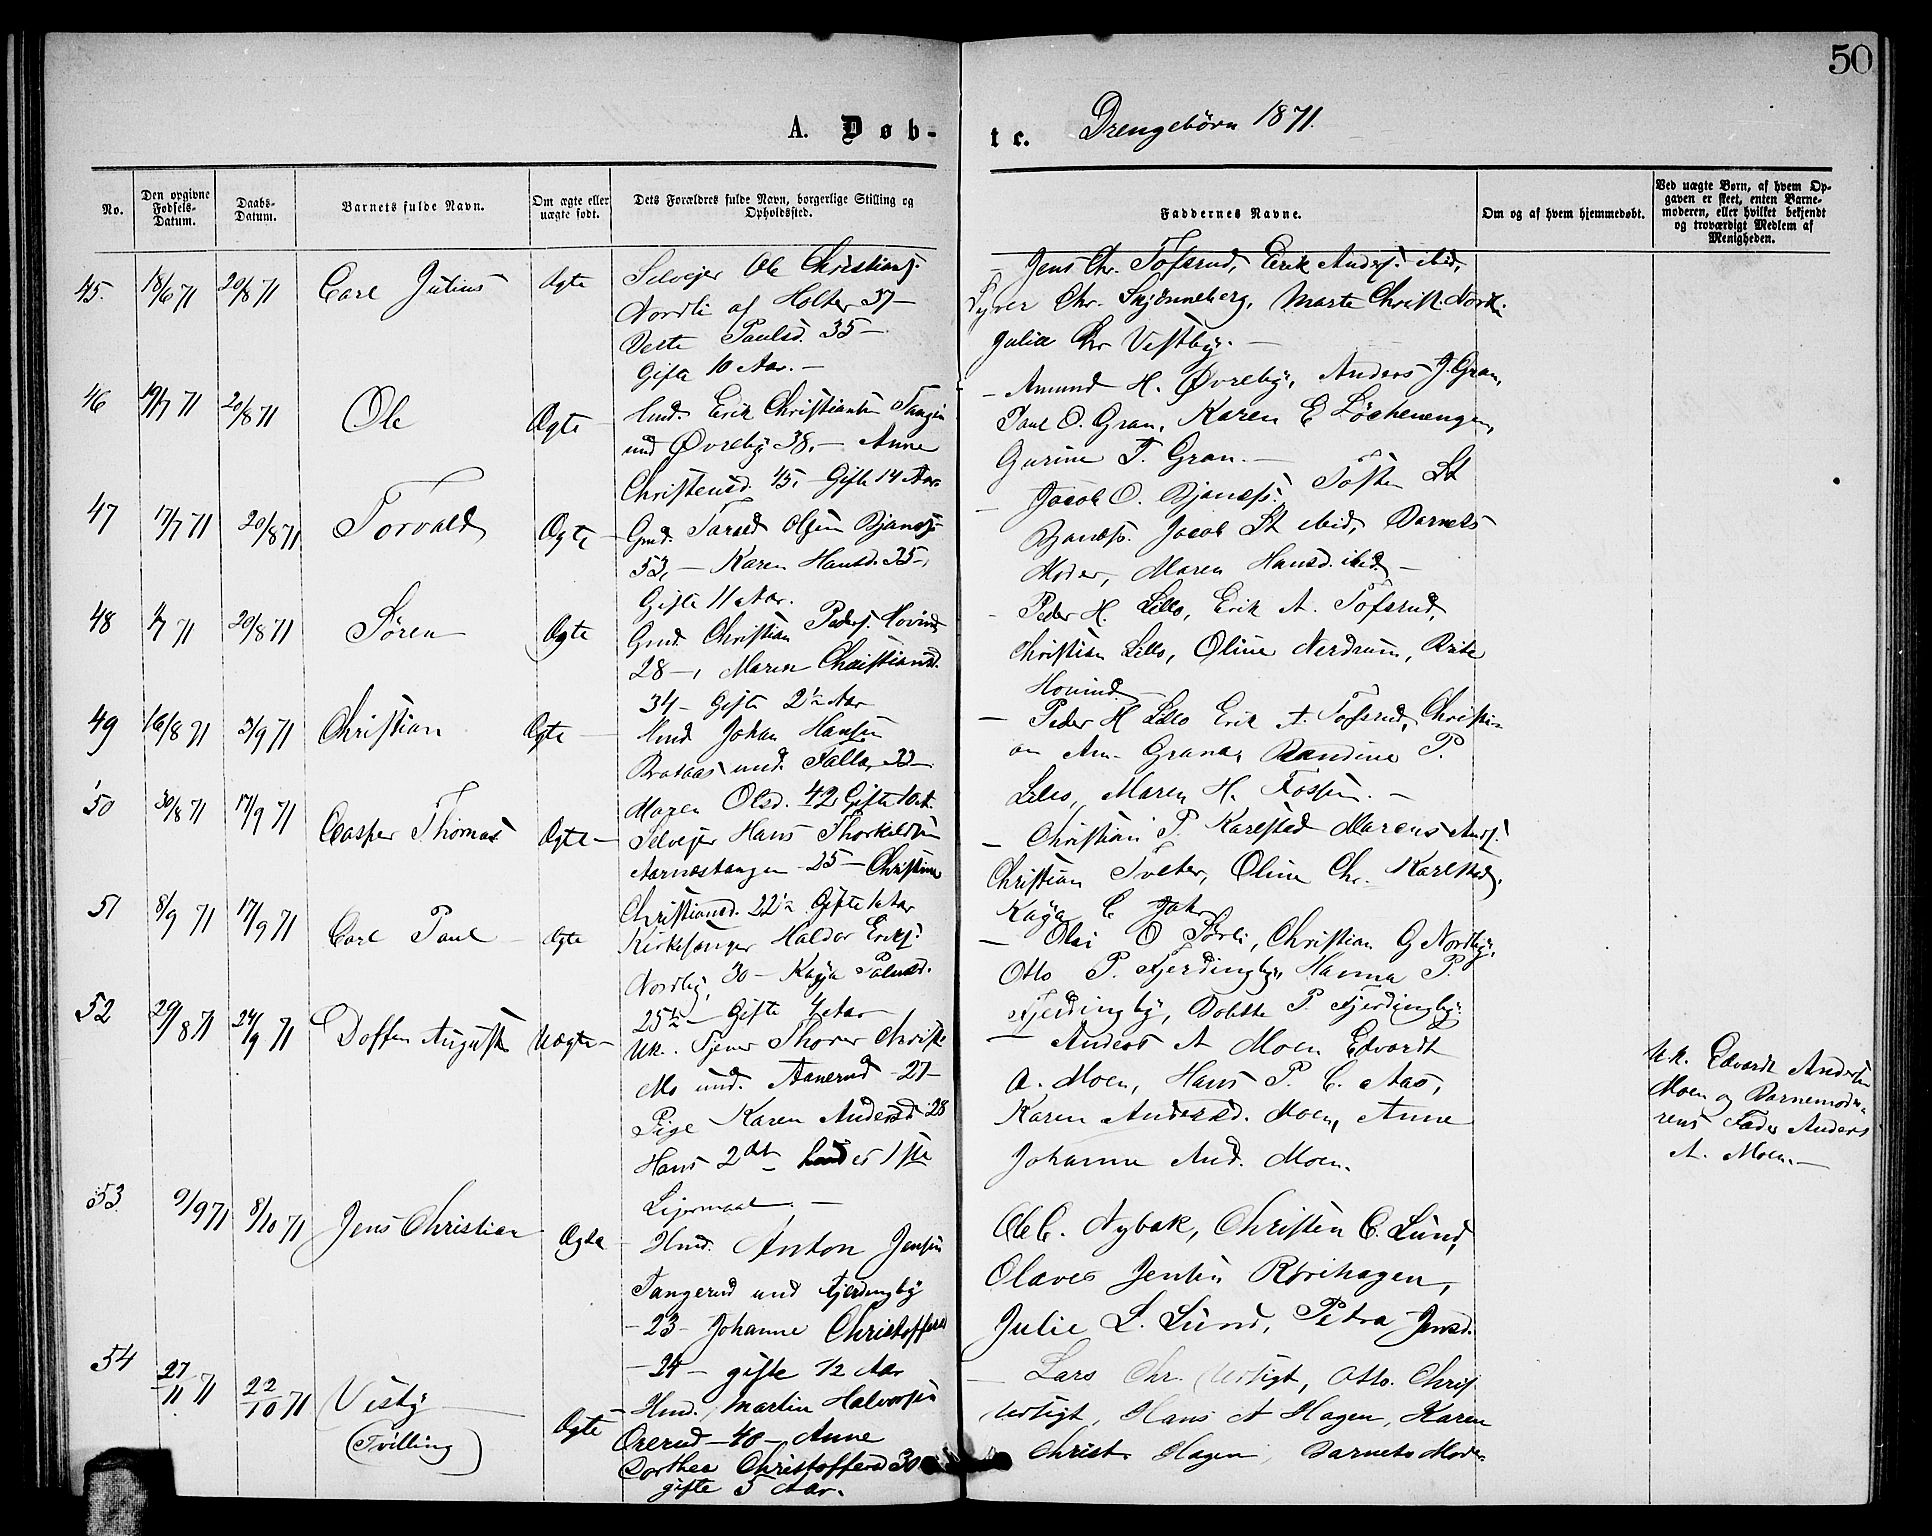 50
A. Døb-
te. Drengebørn 1871.
No.
Den opgivne Fødsels-Datum.
Daabs-Datum.
Barnets fulde Navn.
Om ægte eller uægte født.
Dets Forældres fulde Navn, borgerlige Stilling og Opholdssted.
Faddernes Navne.
Om og af hvem hjemmedøbt.
Ved uægte Børn, af hvem Op-
gaven er skeet, enten Barne-
moderen, eller hvilket bekjendt
og troværdigt Medlem af
Menigheden.
45. 18/6 71 20/8 71 Carl Julius Ægte
Selvejer Ole Christians.
Nordli af Holter 37 –
Paulsd. 35 –
Gifte 10 Aar. –
– Jens Chr. Tofsrud, Erik Anders. ibid,
Chr. Skjønneberg, Marte Christ. Nordli
Julia Chr Vestby. –
46 19/7 71 20/8 71 Ole Ægte –
Hmd. Erik Christiansen Tangen
und Øvreby 38, – Anne
Christensd. 45, – Gifte 14 Aar
– Amund H. Øvreby, Anders J. Gran,
Paul O. Gran, Karen E Løchenengen,
Gurine T. Gran. –
47 17/7 71 20/8 71 Torvald Ægte –
Gmd. Olsen
53, – Karen Hansd. 35 –,
Gifte 11 Aar.
– Jacob O. Tosten St
Jacob St ibid, Barnets
Moder, Maren Hansd. ibid. –
48 4/7 71 20/8 71 Søren Ægte
Gmd. Christian Peders. Hovind
28 –, Maren Christiansd.
34 – Gifte 2½ Aar
– Peder H. Lillo, Erik A. Tofsrud,
Christian Lillo, Oline Nerdrum,
Hovind –
49 16/8 71 3/9 71 Christian Ægte –
Hmd Johan Hansen
Brataas und. Falla, 33 –
Maren Olsd. 42 Gifte 10 A.
– Peder H Lillo Erik A. Tofsrud, Christi-
an Am. Randine P.
Lillo, Maren H. Fossen. –
50 30/8 71 17/9 71 Casper Thomas Ægte –
Selvejer Hans Thorkeldsen
Aarnæstangen – 25 – Christine
Christiansd. 22½ Gifte 1 Aar
– Christian P. Karlstad Marens Ands.
Christian Tveter, Oline Chr. Karlstad,
Kaja C
51 8/9 71 17/9 71 Carl Paul – Ægte
Kirkesanger Haldor Eriks.
Nordby, 30 – Kaja
25½ – Gifte 4 Aar
– O Christian G Nordby,
Otto P. Fjerdingby, Hanna P.
Fjerdingby, P. Fjerdingby.
52 29/8 71 24/9 71 Doffen August Uægte –
UK. Tjener Thorer Christ.
Mo und. Aanerud – 27 –
Pige Karen Andersd – 28
Hans 2det – hendes 1ste
Lejermaal –
– Anders A Moen Edvardt
A. Moen, Hans P. C. Aas,
Karen Andersd. Moen, Anne
Johanne And. Moen.
U.K. Edvardt Andersen
Moen og Barnemode-
rens Fader Anders
A. Moen. –
53. 9/9 71 8/10 71 Jens Christian Ægte –
Hmd. Anton Jensen
Tangerud und Fjerdingby
– 23 – Johanne Christoffersd
– 24 – gifte 1/2 Aar
Ole C. Nybak, Christen C. Lund,
Olaves Jensen Rørihagen,
Julie L. Lund, Petra Jensd.
54 27/11 71 22/10 71 Visty – (Tvilling) Ægte
– Hmd. Martin Halvorsen
Ørerud – 40 –, Anne
Dorthea Christoffersd 30
gifte 5 Aar.
– Lars Chr. Urstigt, Otto Chris.
Urstigt, Hans A Hagen, Karen
Christ. Hagen, Barnets Moder